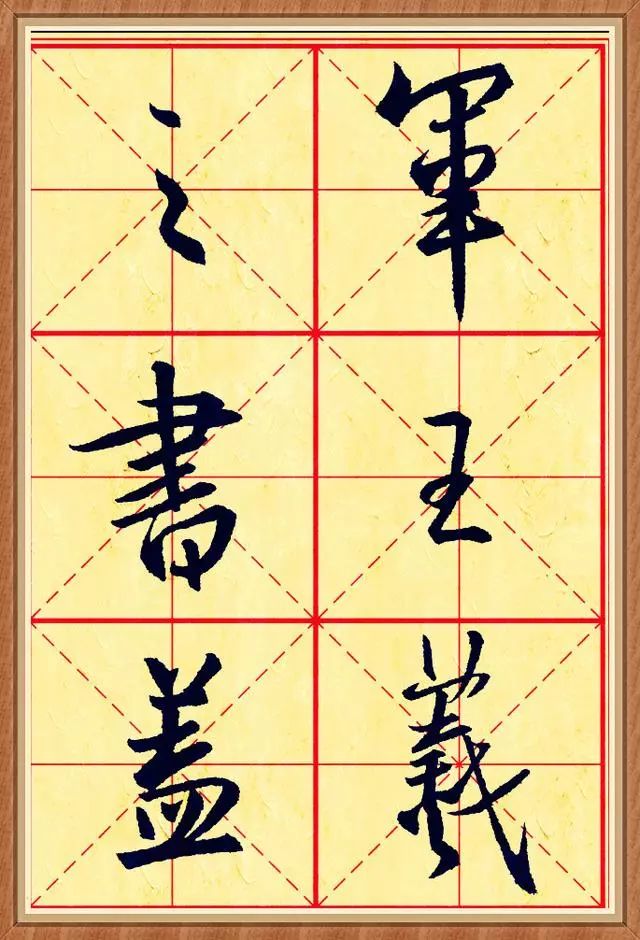 軍王羲
之書蓋